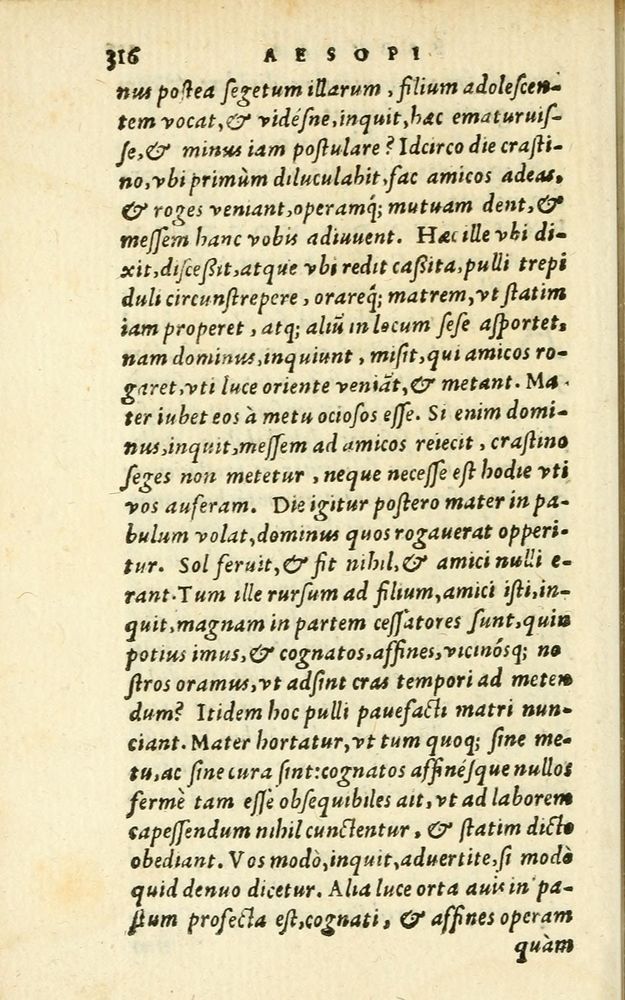 316 AESOPI
nus postea segetum illarum, filium adolescen-
tem vocat, & vidésne, inquit, hæc ematuruis-
se, & minus iam postulare? Idcirco die crasti-
no, vbi primùm diluculabit, fac amicos adeas,
& roges veniant, operamq; mutuam dent, &
messem hanc vobis adiuuent. Hæc ille vbi di-
xit, discessit, atque vbi redit cassita, pulli trepi
duli circunstrepere, orareq; matrem, vt statim
iam properet, atq; aliũ in locum sese asportet,
nam dominus, inquiunt, misit, qui amicos ro-
garet, vti luce oriente veniãt, & metant. Ma-
ter iubet eos à metu ociosos esse. Si enim domi-
nus, inquit, messem ad amicos reiecit, crastino
seges non metetur, neque necesse est hodie vti
vos auferam. Die igitur postero mater in pa-
bulum volat, dominus quos rogauerat opperi-
tur. Sol feruit, & fit nihil, & amici nulli e-
rant. Tum ille rursum ad filium, amici isti, in-
quit, magnam in partem cessatores sunt, quin
potius imus, & cognatos, affines, vicinósq; no
stros oramus, vt adsint cras tempori ad meten
dum? Itidem hoc pulli pauefacti matri nun-
ciant. Mater hortatur, vt tum quoq; sine me-
tu, ac sine cura sint: cognatos affinésque nullos
fermè tam esse obsequibiles ait, vt ad laborem
capessendum nihil cunctentur, & statim dicto
obediant. Vos modò, inquit, aduertite, si modò
quid denuo dicetur. Alia luce orta auis in pa-
stum profecta est, cognati, & affines operam
quàm